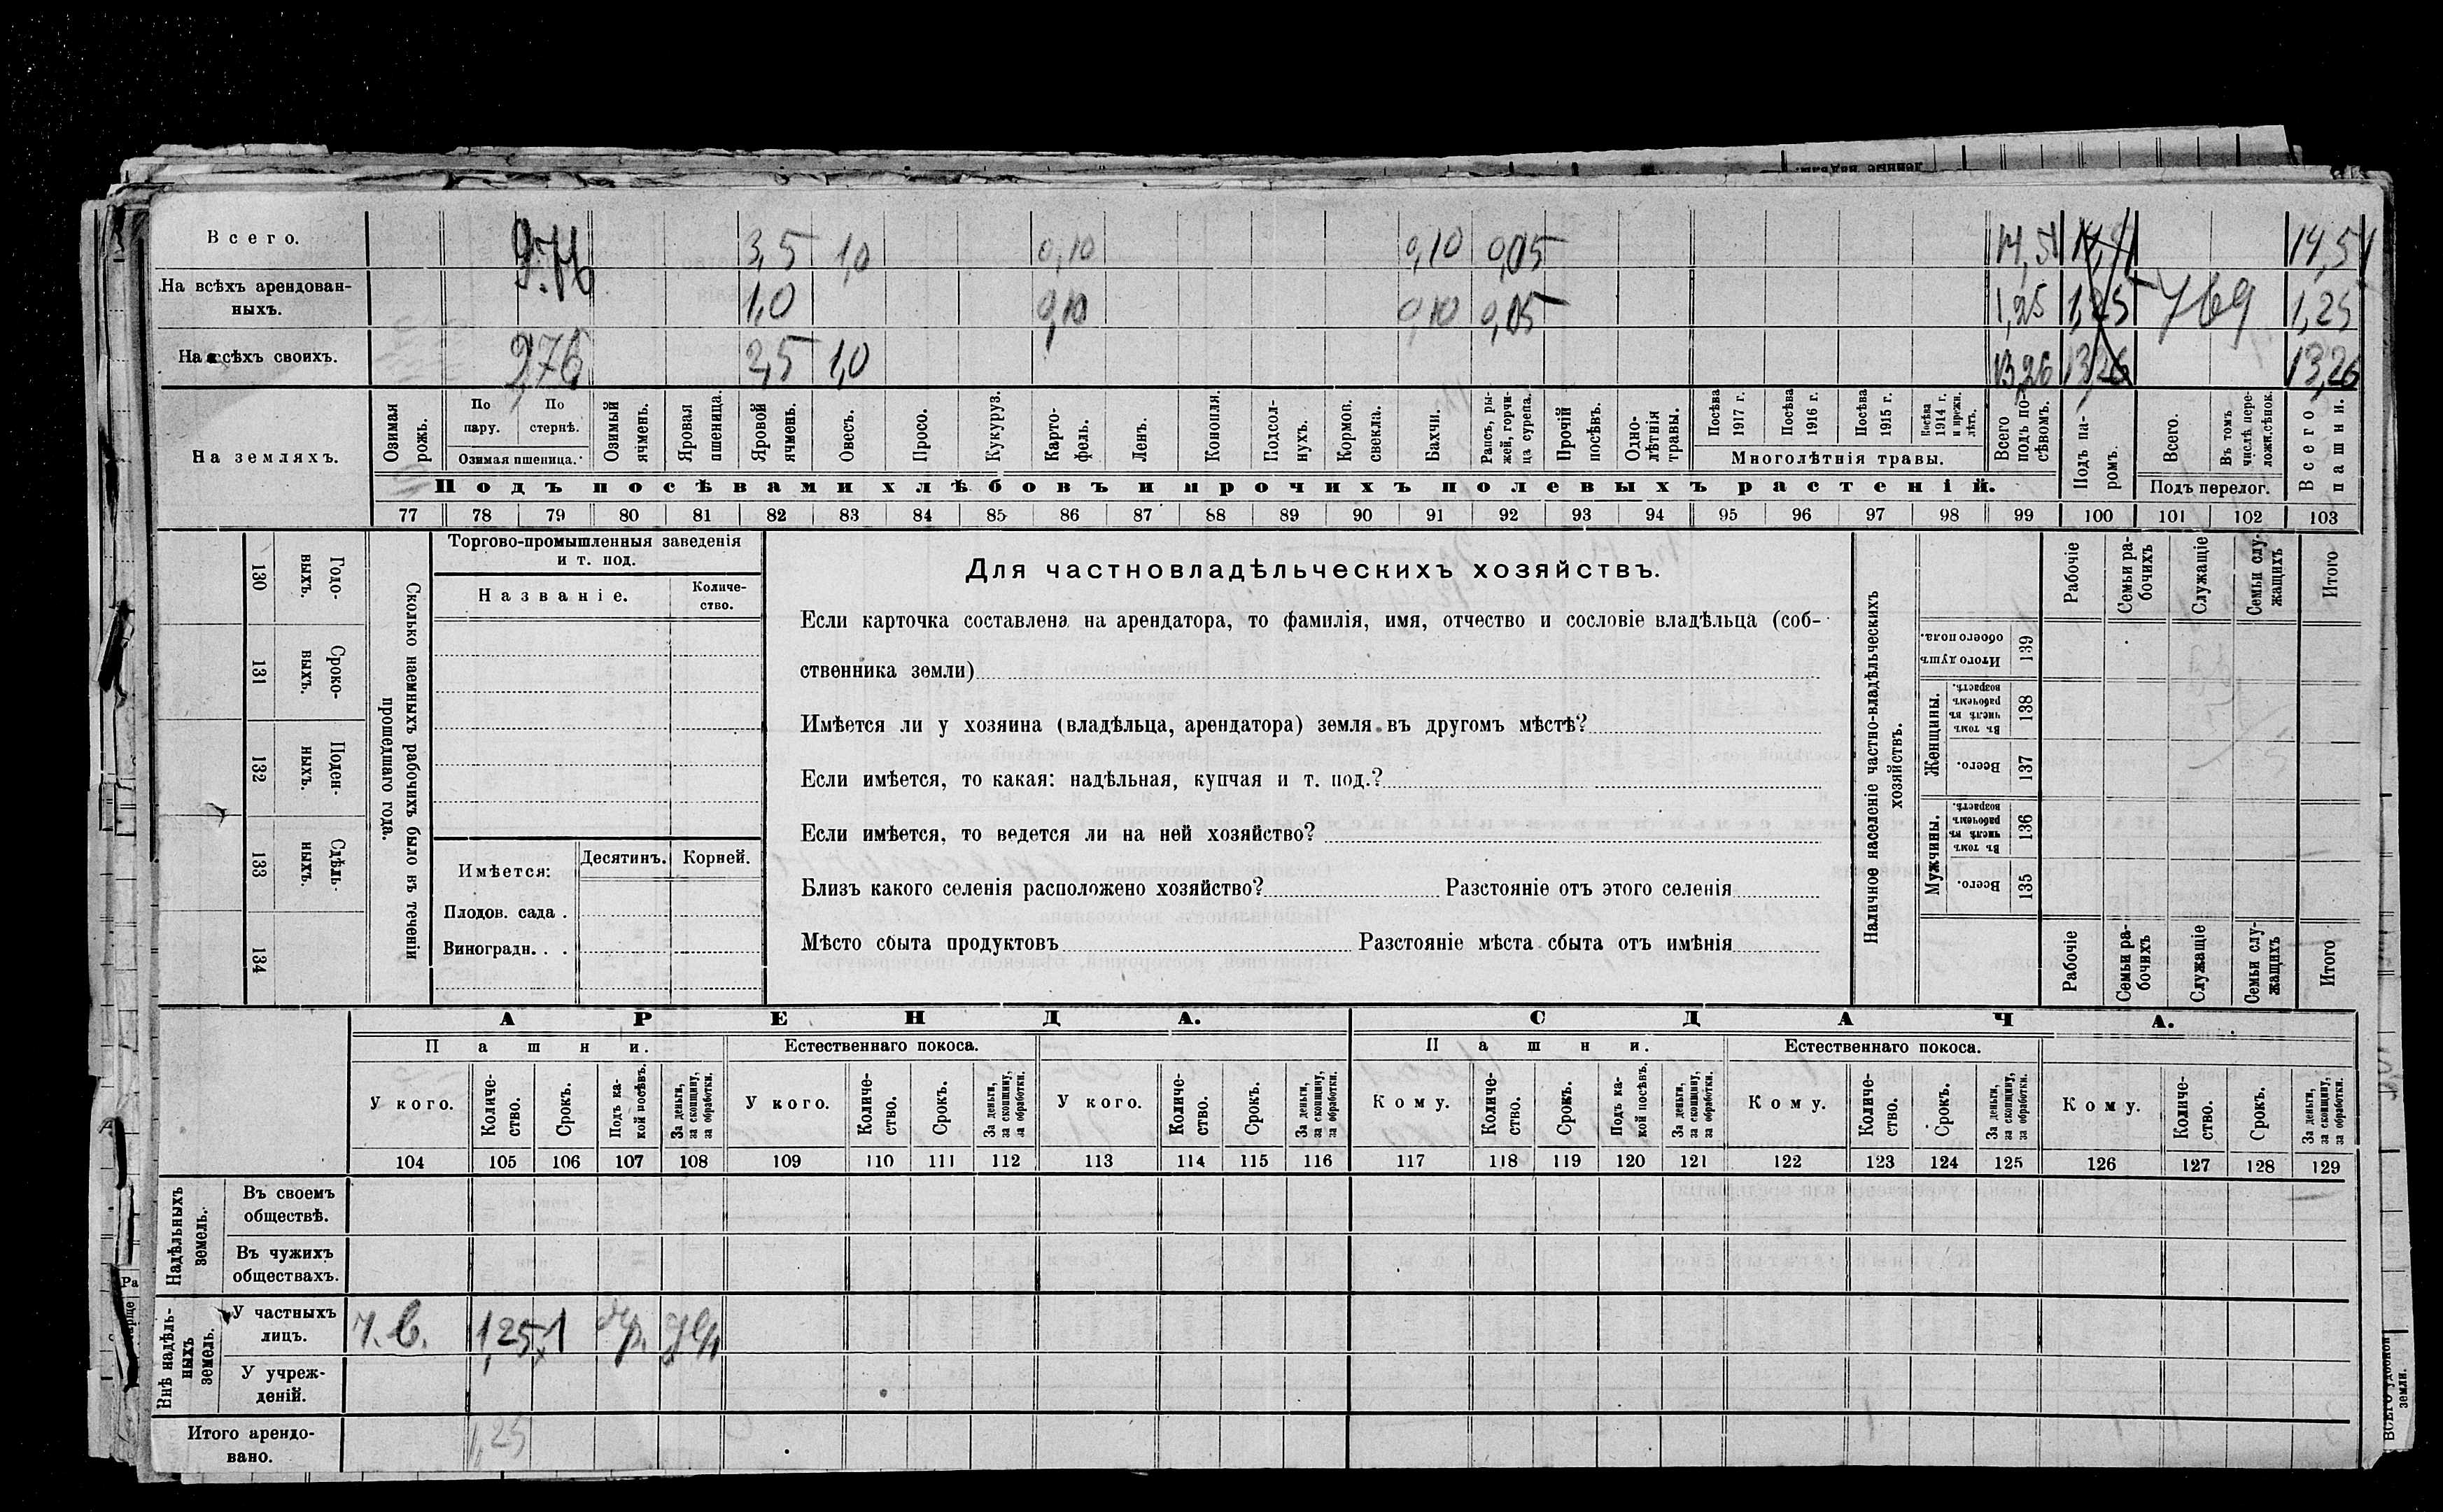 Всего. 9,76 3,5 1,0 0,10 0,10 0,05 14,51 14,51 14,51
На всѣхъ арендованныхъ. 1,0 0,10 0,10 0,05 1,25 1,25 1,25
На всѣхъ своихъ. 9,76 2,5 1,0 13,26 13,26 13,26
На земляхъ.
Озимая рожь.
По пару.
По стернѣ.
Озимая пшеница.
Озимый ячмень.
Яровая пшеница.
Яровой ячмень.
Овесъ.
Просо.
Кукуруз.
Картофель.
Ленъ.
Конопля.
Подсолнухъ.
Кормов. свекла.
Бахчи.
Рапсъ, рыжей, горчица сурепа.
Прочій посѣвъ.
Однолѣтнія травы.
Посѣва 1917 г.
Посѣва 1916 г.
Посѣва 1915 г.
Посѣва 1914 г. и прежн. лѣтъ.
Многолѣтнія травы.
Всего подъ посѣвомъ.
Подъ паромъ.
Всего.
Въ томъ числѣ переложн. сѣнок.
Подъ перелог.
Всего пашни.
Подъ посѣвами хлѣбовъ и прочихъ полевыхъ растеній.
77 78 79 80 81 82 83 84 85 86 87 88 89 90 91 92 93 94 95 96 97 98 99 100 101 102 103
130 Годовыхъ.
131 Сроковыхъ.
132 Поденныхъ.
133 Сдѣльныхъ.
134
Сколько наемныхъ рабочихъ было въ теченіи прошедшаго года.
Торгово-промышленныя заведенія и т. под.
Названіе.
Количество.
Имѣется:
Десятинъ.
Корней.
Плодов. сада .
Виноградн. . .
Для частновладѣльческихъ хозяйствъ.
Если карточка составлена на арендатора, то фамилія, имя, отчество и сословіе владѣльца (соб-
ственника земли)
Имѣется ли у хозяина (владѣльца, арендатора) земля въ другомъ мѣстѣ?
Если имѣется, то какая: надѣльная, купчая и т. под.?
Если имѣется, то ведется ли на ней хозяйство?
Близъ какого селенія расположено хозяйство? Разстояніе отъ этого селенія
Мѣсто сбыта продуктовъ Разстояніе мѣста сбыта отъ имѣнія
Наличное населеніе частно-владѣльческихъ хозяйствъ.
Рабочіе
Семьи рабочихъ
Служащіе
Семьи служащихъ
Итого
Итого душъ обоего пола. 139
Женщины.
Въ томъ числѣ въ рабочемъ возрастѣ. 138
Всего. 137
Мужчины.
Въ томъ числѣ въ рабочемъ возрастѣ. 136
Всего. 135
Рабочіе
Семьи рабочихъ
Служащіе
Семьи служащихъ
Итого
АРЕНДА. СДАЧА.
Пашни. Естественнаго покоса. Пашни. Естественнаго покоса.
У кого. Количество. Срокъ. Подъ какой посѣвъ. За деньги, за скопщину, за обработки.
У кого. Количество. Срокъ. За деньги, за скопщину, за обработки.
У кого. Количество. Срокъ. За деньги, за скопщину, за обработки.
Кому. Количество. Срокъ. Подъ какой посѣвъ. За деньги, за скопщину, за обработки.
Кому. Количество. Срокъ. За деньги, за скопщину, за обработки.
Кому. Количество. Срокъ. За деньги, за скопщину, за обработки.
104 105 106 107 108 109 110 111 112 113 114 115 116 117 118 119 120 121 122 123 124 125 126 127 128 129
Надѣльныхъ земель.
Въ своемъ обществѣ.
Въ чужихъ обществахъ.
Внѣ надѣльныхъ земель.
У частныхъ лицъ. 1,25 1
У учрежденій.
Итого арендовано. 1,25
ВСЕГО удобной земли.